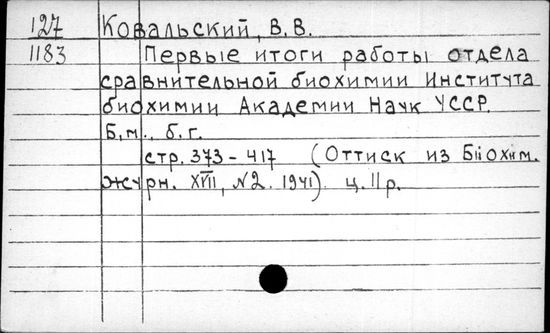 127 Ковальский, В.В.
1183 Первые итоги работы отдела
сравнительной биохимии Института
биохимии Академии Наук УССР.
Б.м., б.г.
стр. 373-417 (Оттиск из Біохим.
журн. XVII, №2. 1941). ц. 11 р.